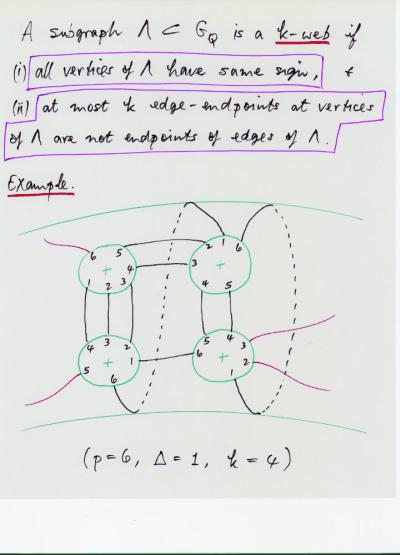 A subgraph Λ ⊂ G_Q is a k-web if
(i) all vertices of Λ have same sign, &
(ii) at most k edge-endpoints at vertices
of Λ are not endpoints of edges of Λ.
Example.
6 5 4 1 2 3 +
2 1 6 3 4 5 +
4 3 2 5 1 6 +
5 4 3 6 2 1 +
(p=6, Δ=1, k=4)